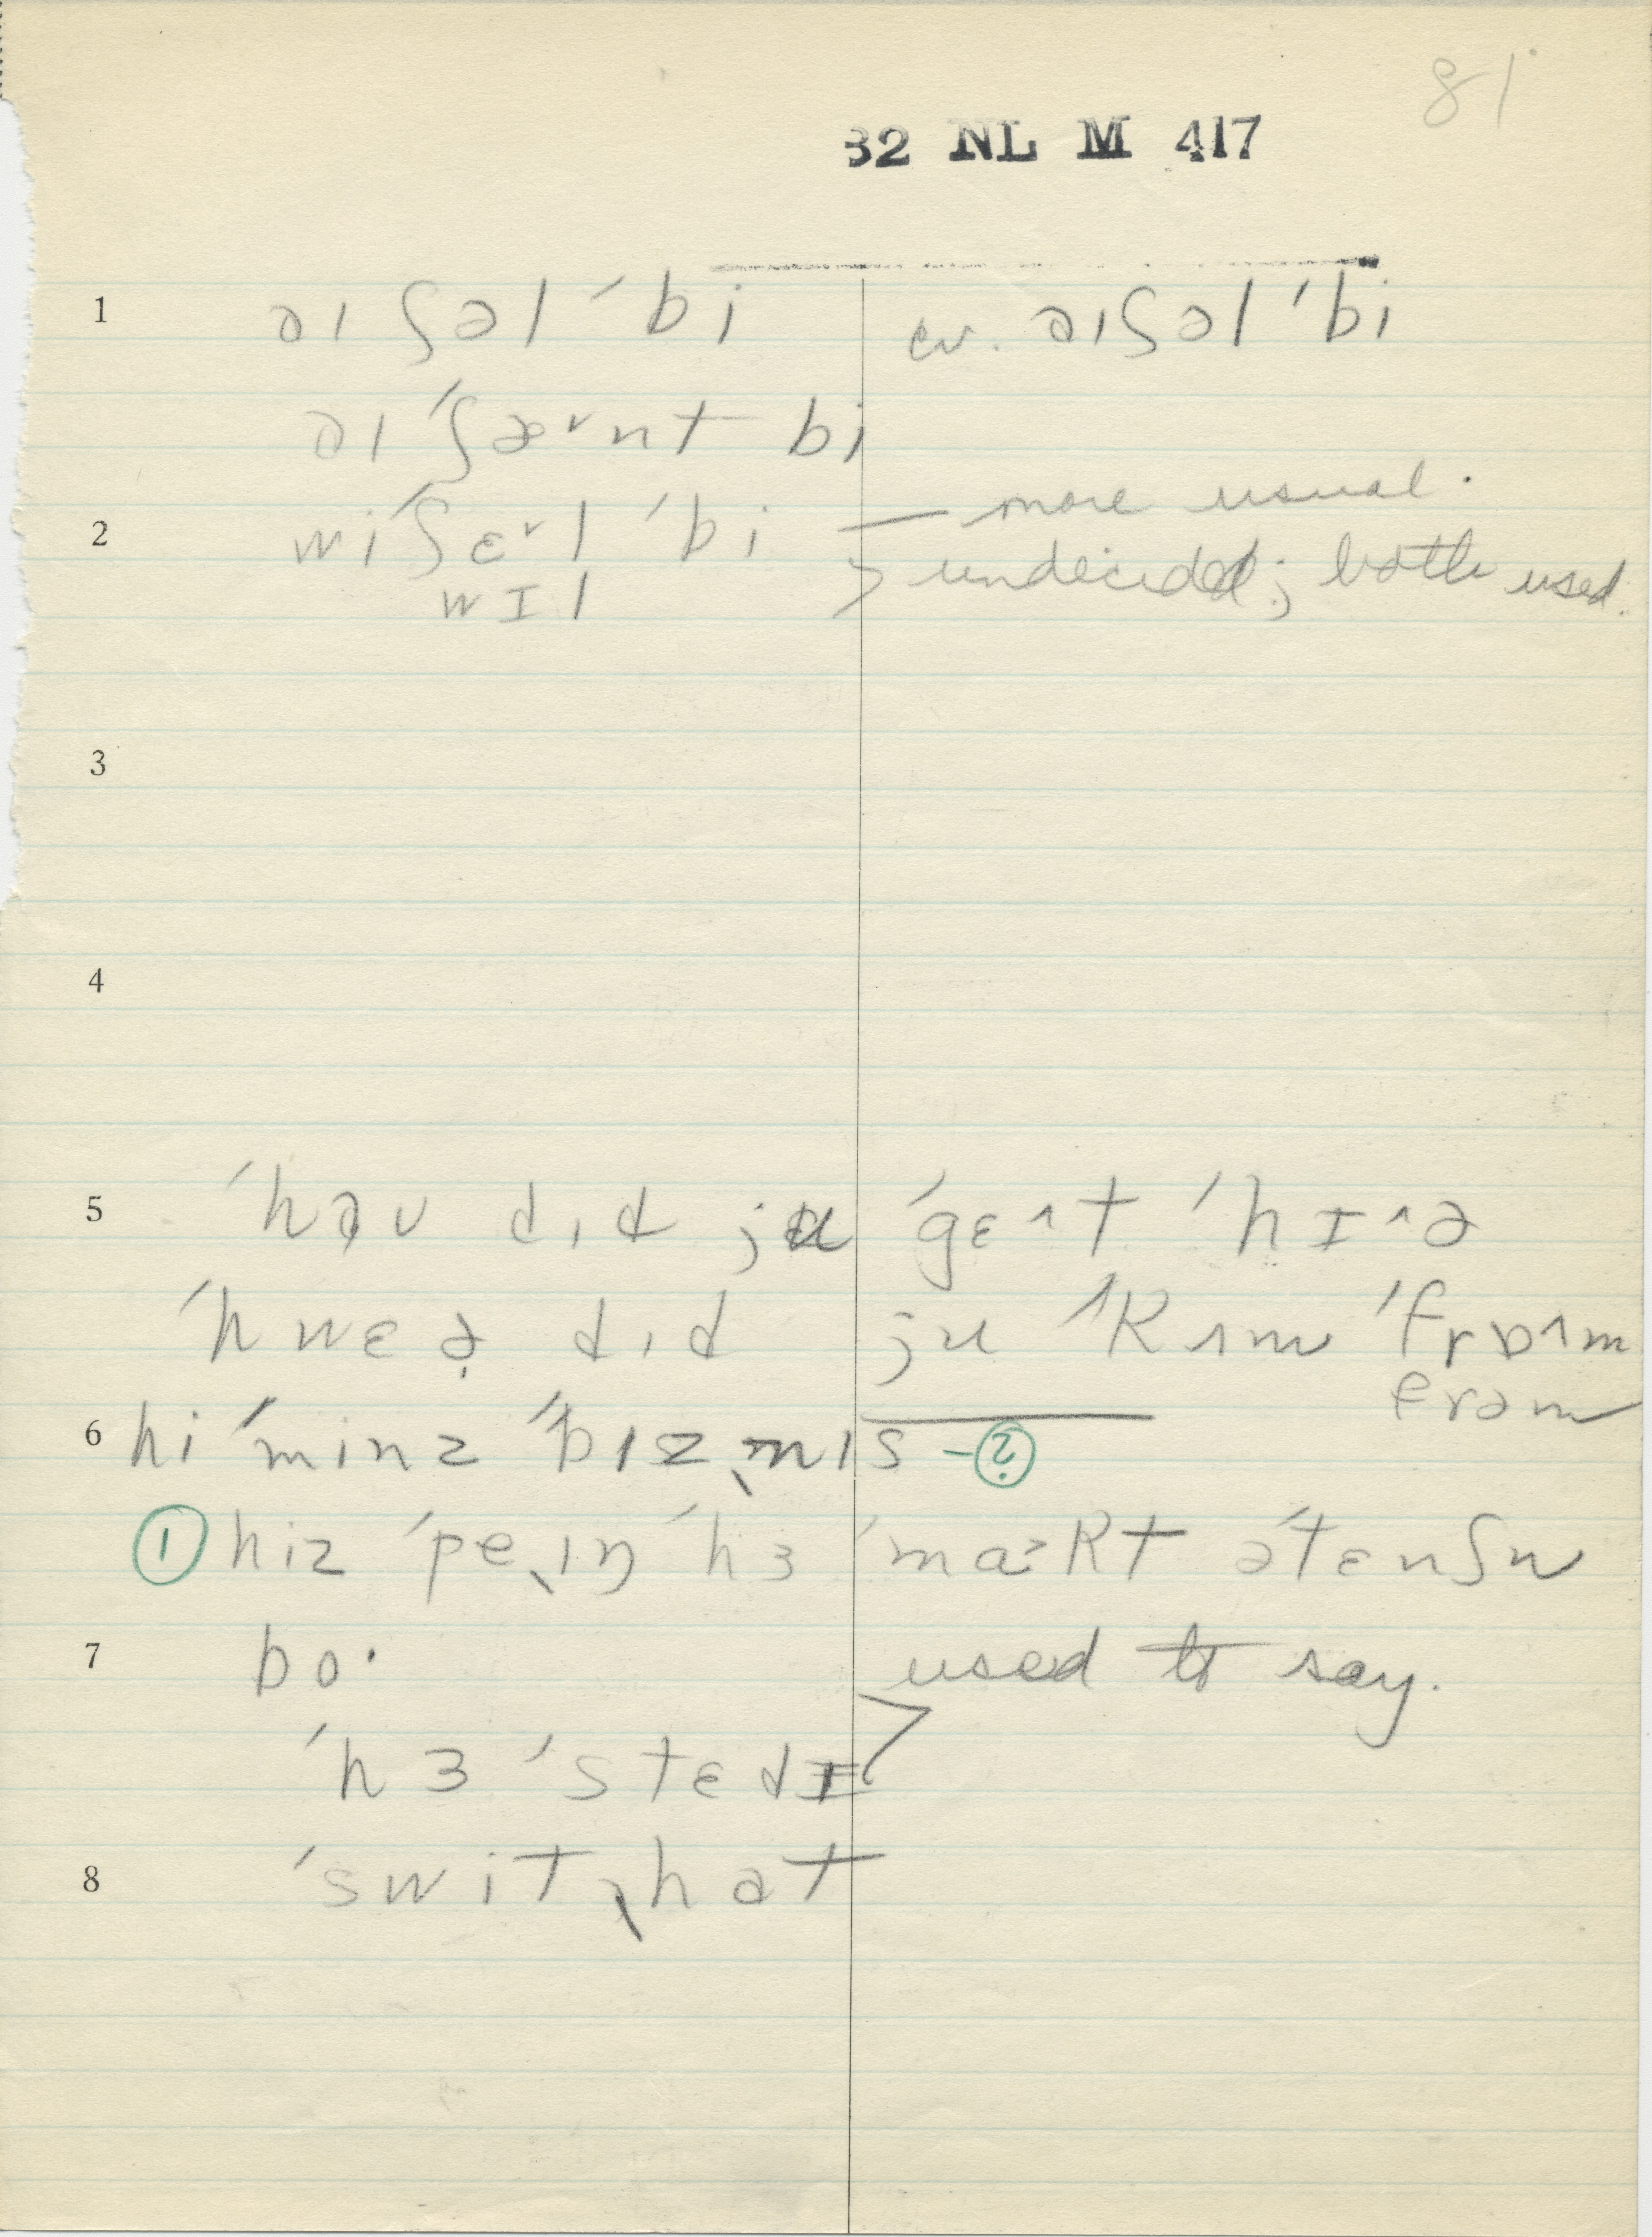 81
32 NL M 417
1 əɪ ʃəl ˈbi cv. əɪʃəl ˈbi
əɪ ˈʃæ˅nt bi
2 wi ˈʃɛ˅l ˈbi — more usual.
wɪl > undecided; both used.
3
4
5 ˈhəʊ dɪd ju ˈgɛ^t ˈhɪ^ə
ˈhwɛə̣ dɪd ju ˈkʌm ˈfrɒ^m
frəm
6 hi ˈminz ˈbɪzˌnɪs – ?
1 hiz ˈpeˌɪŋ ˈhɜ ˈma˃kt əˈtɛnʃn
7 bo· used to say.
ˈhɜ ˈstɛdɪ >
8 ˈswitˌhat